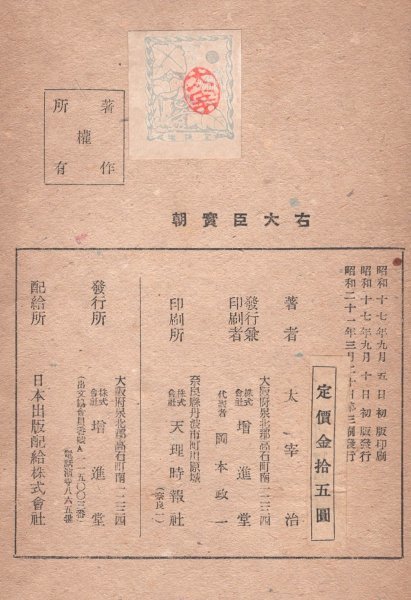 太宰
著作
權
所有
右大臣實朝
昭和十七年九月五日初版印刷
昭和十七年九月十日初版發行
昭和二十一年三月二十日第三刷發行
定價金拾五圓
著者　太宰治
發行兼印刷者
大阪府泉北郡高石町南一二三四
株式會社 增進堂
代表者 岡本政一
印刷所
奈良縣丹波市町川原城
株式會社 天理時報社
(奈良一)
發行所
大阪府泉北郡高石町南一二三四
株式會社 增進堂
(出文協會員 A 五〇〇三番)
八六五番
配給所　日本出版配給株式會社